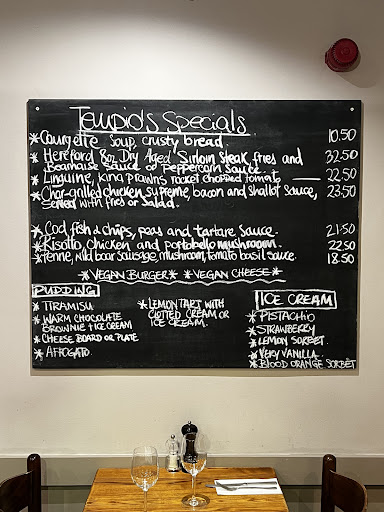 Tempio's Specials
*Courgette Soup, crusty bread. 10.50
*Hereford 8oz Dry Aged Sirloin steak, fries and 32.50
Bearnaise Sauce or Peppercorn Sauce
*Linguine, king prawns rocket chopped tomato 22.50
*Char-grilled chicken supreme, bacon and shallot sauce, 23.50
served with fries or salad.
*Cod fish & chips, peas and tartare sauce. 21.50
*Risotto, chicken and portobello mushroom. 22.50
*Penne, wild boar sausage, mushroom, tomato basil sauce. 18.50
*VEGAN BURGER* *VEGAN CHEESE*
PUDDING
*TIRAMISU
*WARM CHOCOLATE
BROWNIE + ICE CREAM
*CHEESE BOARD OR PLATE
*AFFOGATO.
*LEMON TART WITH
CLOTTED CREAM OR
ICE CREAM.
ICE CREAM
*PISTACHIO
*STRAWBERRY
*LEMON SORBET.
*VERY VANILLA.
*BLOOD ORANGE SORBET